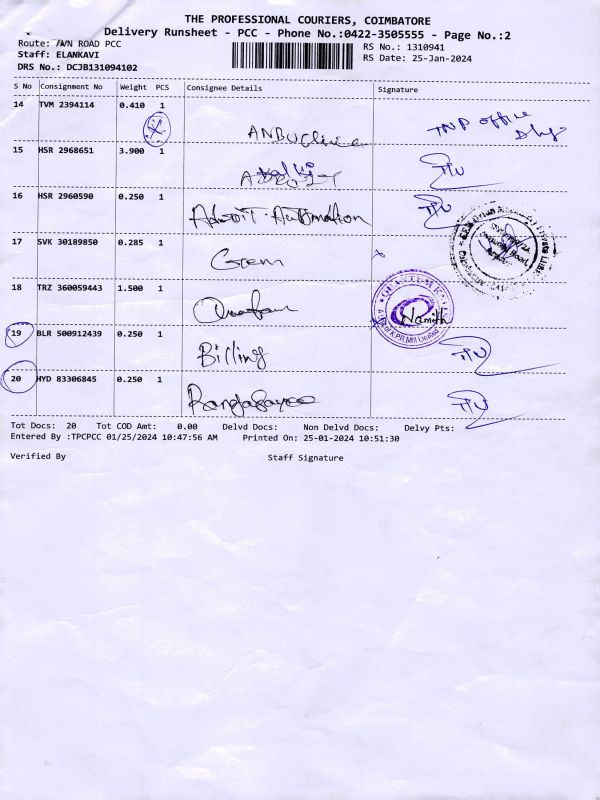 THE PROFESSIONAL COURIERS, COIMBATORE
Delivery Runsheet - PCC - Phone No.:0422-3505555 - Page No.:2
Route: AVN ROAD PCC
RS No.: 1310941
Staff: ELANKAVI
RS Date: 25-Jan-2024
DRS No.: DCJB131094102
S No Consignment No Weight PCS Consignee Details Signature
14 TVM 2394114 0.410 1
ANBU TNP office
15 HSR 2968651 3.900 1
16 HSR 2960590 0.250 1
Adroit Automation
17 SVK 30189850 0.285 1
Gem
18 TRZ 360059443 1.500 1
Namith
KPR Mill Limited
19 BLR 500912439 0.250 1
Billing
20 HYD 83306845 0.250 1
Tot Docs: 20 Tot COD Amt: 0.00 Delvd Docs: Non Delvd Docs: Delvy Pts:
Entered By :TPCPCC 01/25/2024 10:47:56 AM Printed On: 25-01-2024 10:51:30
Verified By Staff Signature